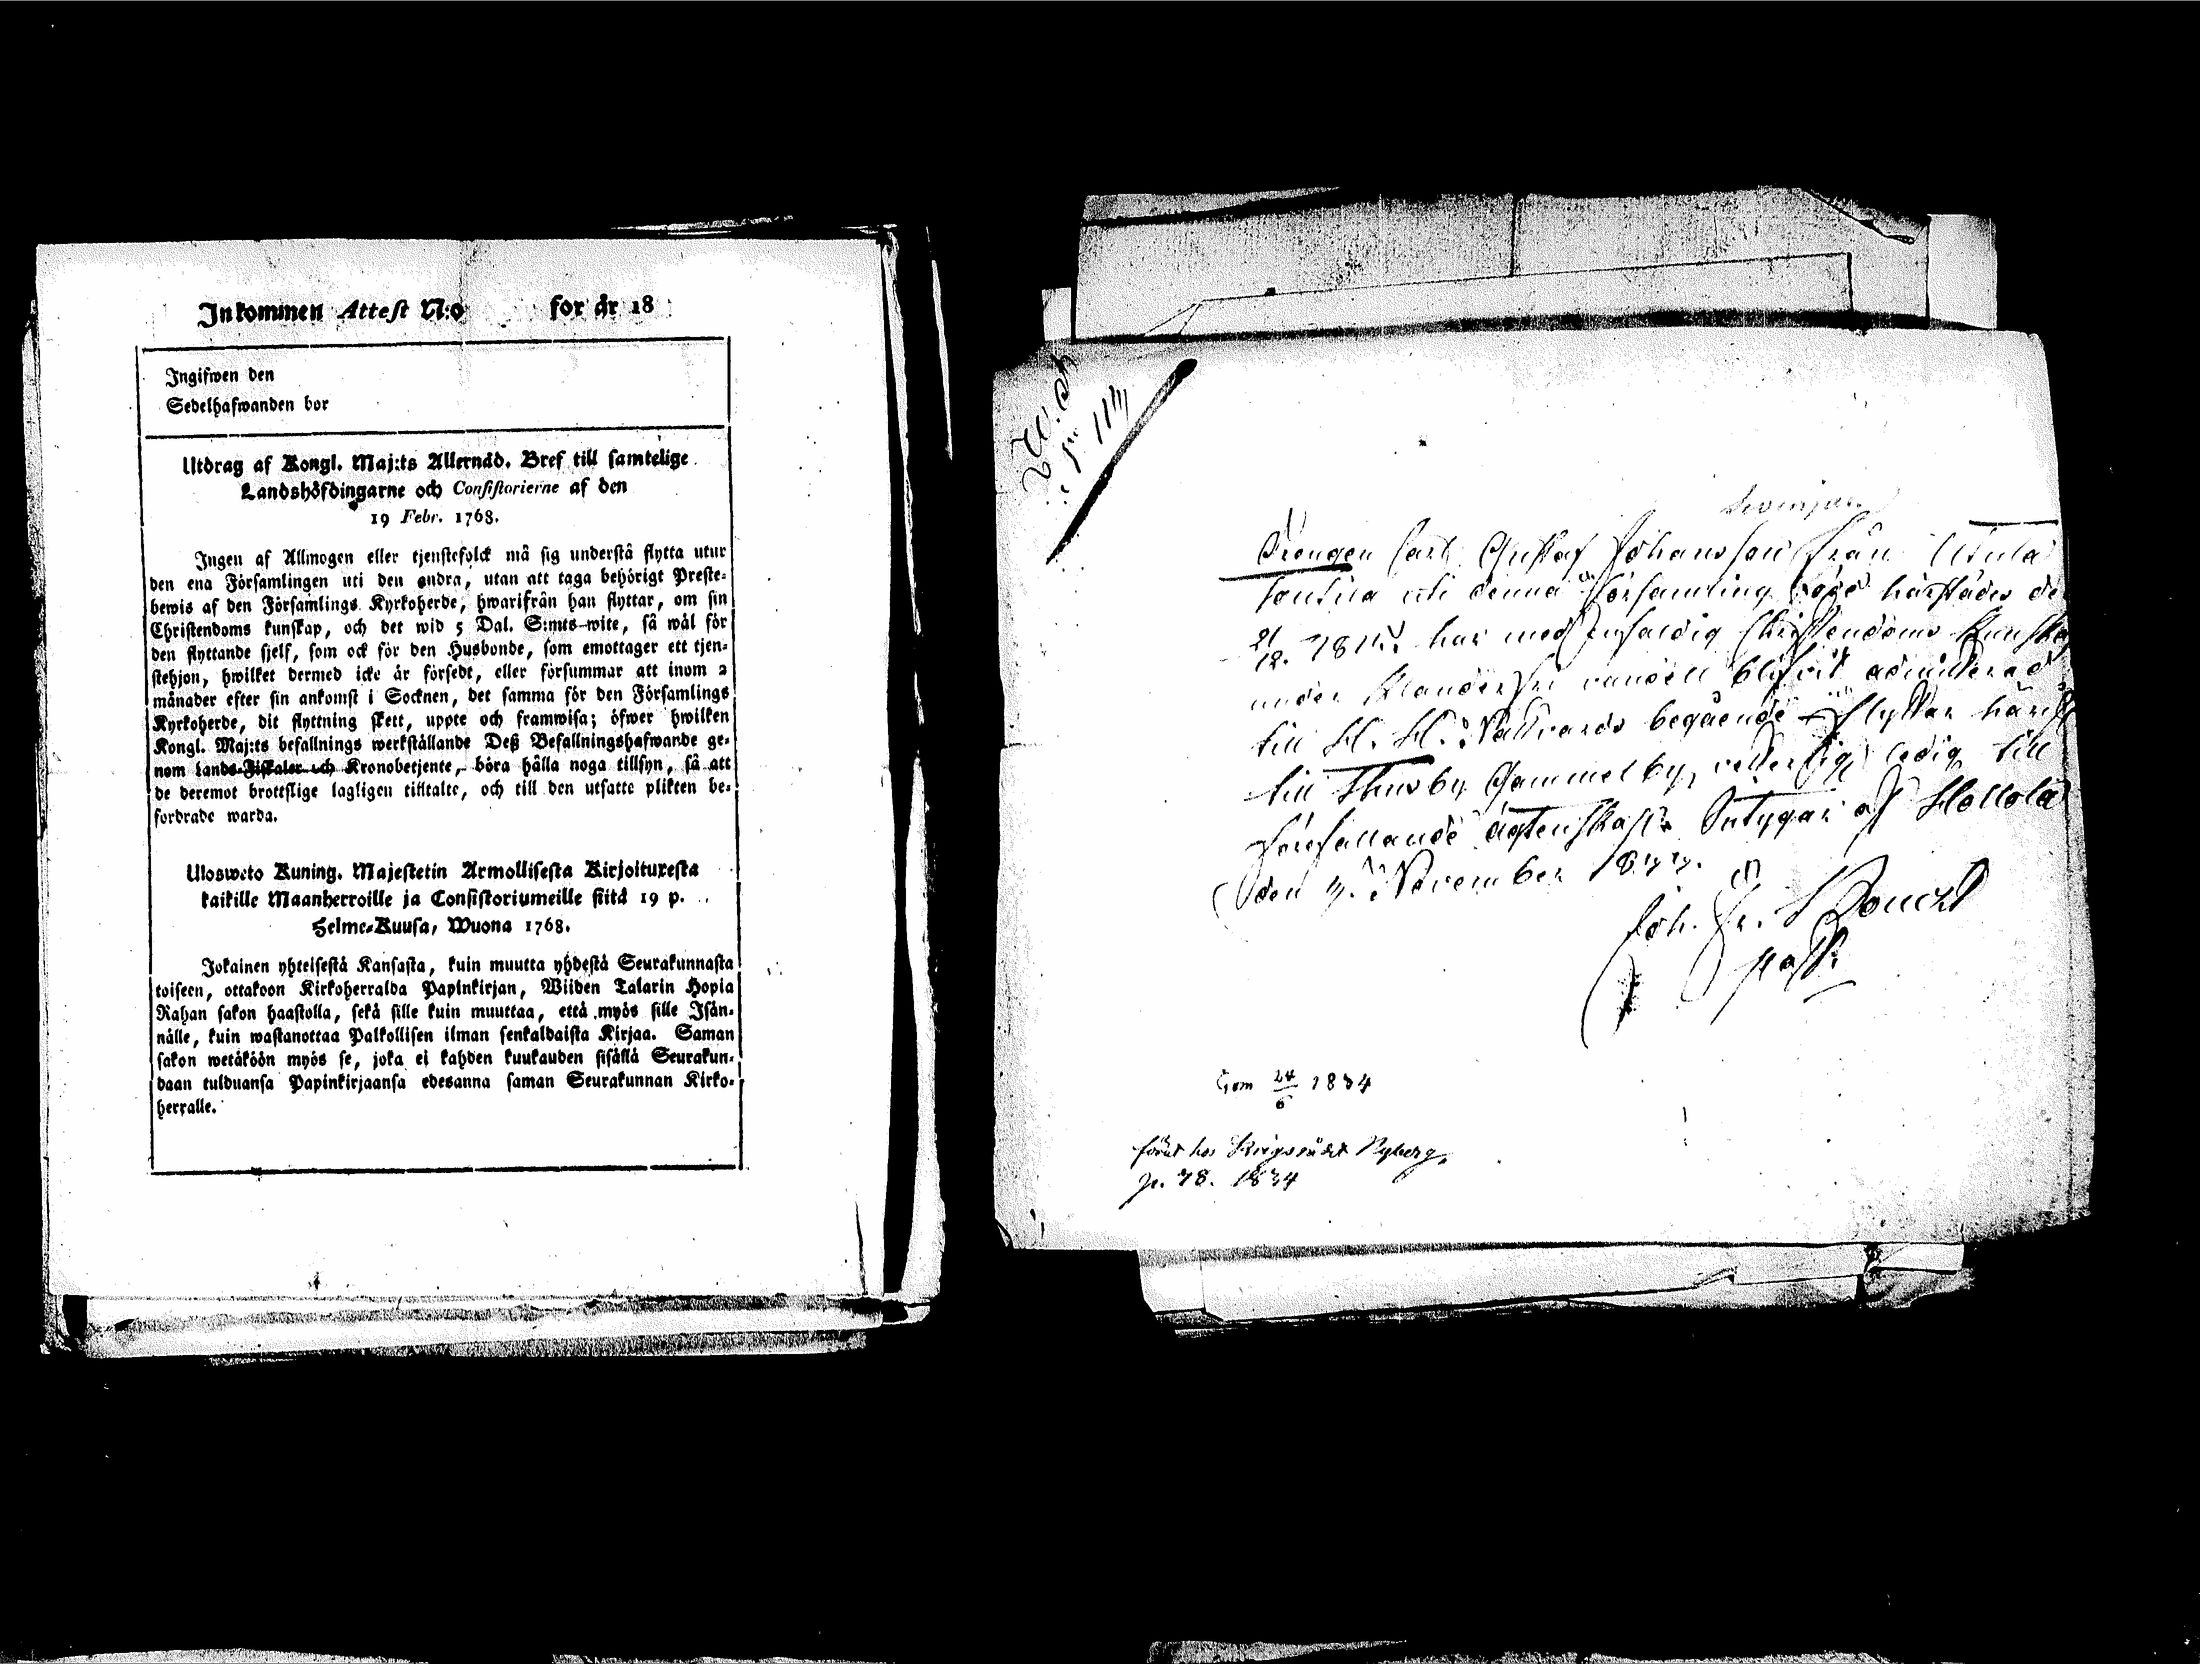 Inkommen Attest N:o for år 18
Ingifwen den
Sedelhafwanden bor
Utdrag af Kongl. Maj:ts Allernåd. Bref till samtelige
Landshöfdingarne och Consistorierne af den
19 Febr. 1768.
Ingen af Allmogen eller tjenstefolck må sig understå flytta utur
den ena Församlingen uti den andra, utan att taga behörigt Preste-
bewis af den Församlings Kyrkoherde, hwarifrån han flyttar, om sin
Christendoms kunskap, och det wid 5 Dal. S:mts wite, så wål för
den flyttande sjelf, som ock för den Husbonde, som emottager ett tjen-
stehjon, hwilket dermed icke är försedt, eller försummar att inom 2
månader efter sin ankomst i Socknen, det samma för den Församlings
Kyrkoherde, dit flyttning skett, uppte och framwisa; öfwer hwilken
Kongl. Maj:ts befallnings werkställande Deß Befallningshafwande ge-
nom Lands-Fiskaler och Kronobetjente, böra hålla noga tillsyn, så att
de deremot brottslige lagligen tilltalte, och till den utsatte plikten be-
fordrade warda.
Ulosweto Kuning. Majestetin Armollisesta Kirjoituxesta
kaikille Maanherroille ja Consistoriumeille siitä 19 p.
Helme-Kuusa, Wuona 1768.
Jokainen yhteisestä Kansasta, kuin muutta yhdestä Seurakunnasta
toiseen, ottakoon Kirkoherralda Papinkirjan, Wiiden Talarin Hopia
Rahan sakon haastolla, sekä sille kuin muuttaa, että myös sille Isän-
nälle, kuin wastanottaa Palkollisen ilman senkaldaista Kirjaa. Saman
sakon wetäköön myös se, joka ei kahden kuukauden sisällä Seurakun-
daan tulduansa Papinkirjaansa edesanna saman Seurakunnan Kirko-
herralle.
Drengen Carl Gustaf Johansson från Utula
uti denna Församling född härstädes de
har med enfaldig Christendoms Kunskap
under klanderfri vandel blifvit admitterad
till H. H. Nattvards begående flyttar härif
till Thusby Gammelby, veterligen ledig till
förefallande ägtenskap. Intygar af Hollola
den November
Joh. Fr.
past.
Gom 24/6 1834
förut hos Krigsrådet Nyberg,
p. 78. 1834